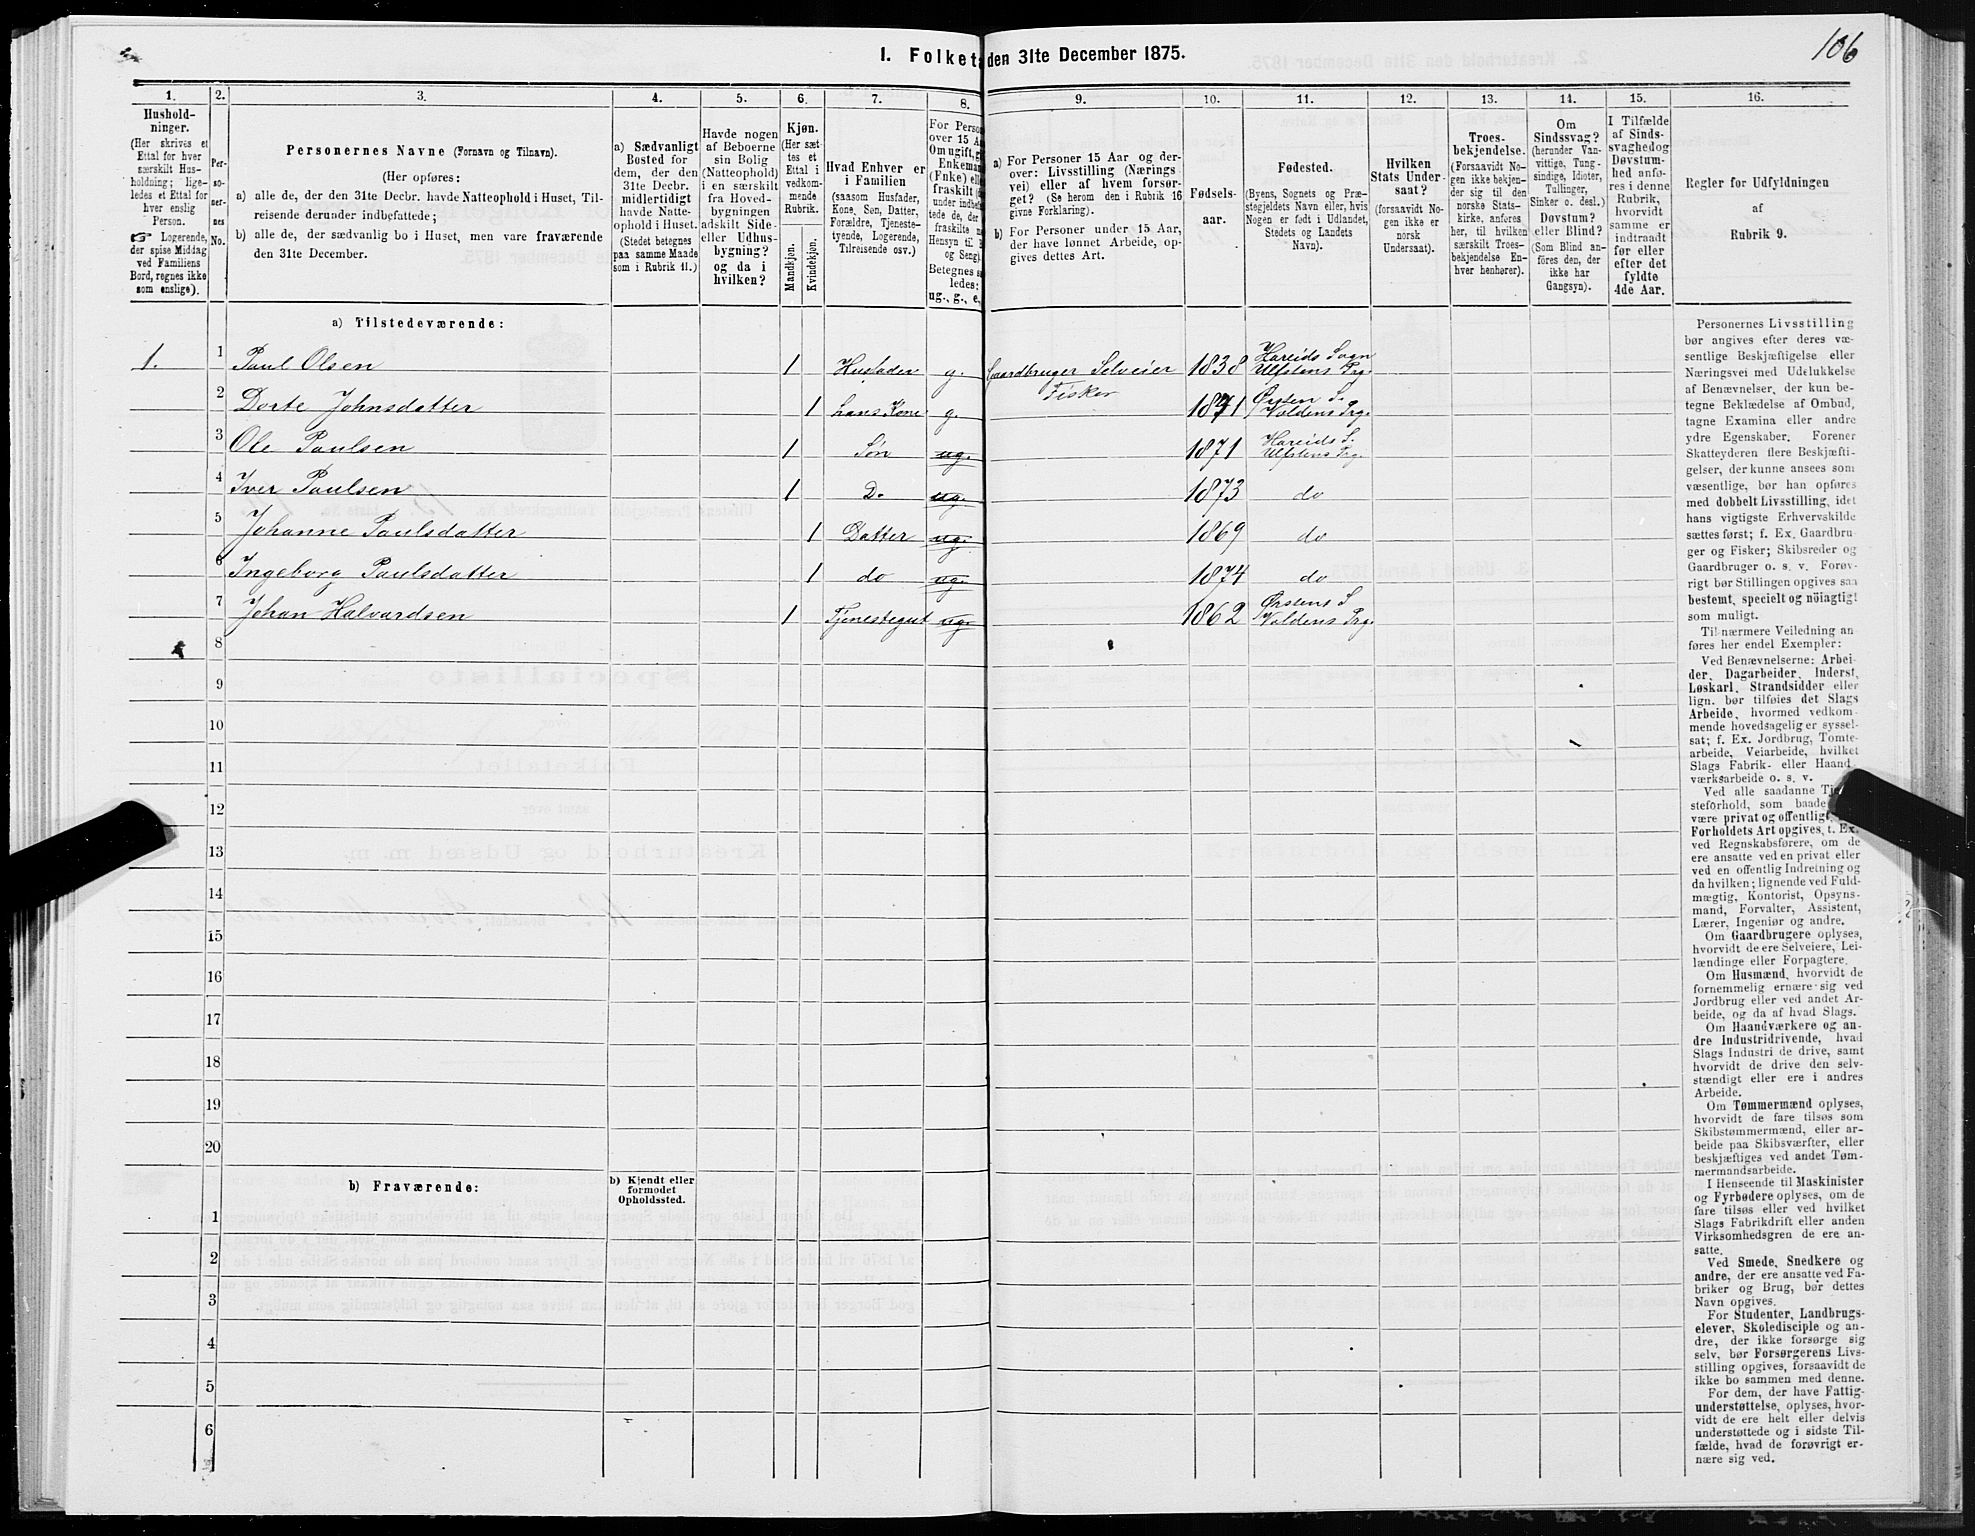 106
1. Folket den 31te December 1875.
1.
2.
3.
4.
5.
6.
7.
8.
9.
10.
11.
12.
13.
14.
15.
16.
Hushold-
ninger.
(Her skrives et
Ettal for hver
særskilt Hus-
holdning; lige-
ledes et Ettal for
hver enslig
Person.
☞ Logerende,
der spise Middag
ved Familiens
Bord, regnes ikke
som enslige).
Per-
so-
ner-
nes
No.
Personernes Navne (Fornavn og Tilnavn).
(Her opføres:
a) alle de, der den 31te Decbr. havde Natteophold i Huset, Til-
reisende derunder indbefattede;
b) alle de, der sædvanlig bo i Huset, men vare fraværende
den 31te December.
a) Sædvanligt
Bosted for
dem, der den
31te Decbr.
midlertidigt
havde Natte-
ophold i Huset.
(Stedet betegnes
paa samme Maade
som i Rubrik 11.)
Havde nogen
af Beboerne
sin Bolig
(Natteophold)
i en særskilt
fra Hoved-
bygningen
adskilt Side-
eller Udhus-
bygning?
og da i
hvilken?
Kjøn.
(Her sæt-
tes et
Ettal i
vedkom-
mende
Rubrik.
Mandkjøn.
Kvindekjøn.
Hvad Enhver er
i Familien
(saasom Husfader,
Kone, Søn, Datter,
Forældre, Tjeneste-
tyende, Logerende,
Tilreisende osv.)
For Perso
over 15 A
Om ugift, g
Enkema
(Enke) el
fraskilt
under indbef
tede de, der
fraskilte
Hensyn til
og Seng).
Betegnes s
ledes:
ug., g., e,
a) For Personer 15 Aar og der-
over: Livsstilling (Nærings
vei) eller af hvem forsør-
get? (Se herom den i Rubrik 16
givne Forklaring).
b) For Personer under 15 Aar,
der have lønnet Arbeide, op-
gives dettes Art.
Fødsels-
aar.
Fødested.
(Byens, Sognets og Præ-
stegjeldets Navn eller, hvis
Nogen er født i Udlandet,
Stedets og Landets
Navn).
Hvilken
Stats Under-
saat?
(forsaavidt No-
gen ikke er
norsk
Undersaat).
Troes-
bekjendelse.
(Forsaavidt No-
gen ikke bekjen-
der sig til den
norske Stats-
kirke, anføres
her, til hvilken
særskilt Troes-
bekjendelse En-
hver henhører).
Om
Sindssvag?
(herunder Van-
vittige, Tung-
sindige, Idioter,
Tullinger,
Sinker o. desl.)
Døvstum?
eller Blind?
(Som Blind an-
føres den, der
ikke har
Gangsyn).
I Tilfælde
af Sinds-
svaghed og
Døvstum-
hed anfø-
res i denne
Rubrik,
hvorvidt
samme er
indtraadt
før eller
efter det
fyldte
4de Aar.
Regler for Udfyldningen
af
Rubrik 9.
a) Tilstedeværende:
1. 1 Paul Olsen 1 Husfader g. Gaardbruger Selveier Fisker 1838 Hareids Sogn Ulfstens Prg.
2 Dorte Johnsdatter 1 hans Kone g. 1841 Ørsten S. Voldens Prg.
3 Ole Paulsen 1 Søn ug. 1871 Hareids S. Ulfstens Prg.
4 Iver Paulsen 1 D. ug. 1873 do
5 Johanne Paulsdatter 1 Datter ug. 1869 do
6 Ingeborg Paulsdatter 1 do ug. 1874 do
7 Johan Halvardsen 1 Tjenestegut ug. 1862 Ørstens S Voldens Prg.
8
9
10
11
12
13
14
15
16
17
18
19
20
b) Fraværende:
b) Kjendt eller
formodet
Opholdssted.
1
2
3
4
5
6
Personernes Livsstilling
bør angives efter deres væ-
sentlige Beskjæftigelse eller
Næringsvei med Udelukkelse
af Benævnelser, der kun be-
tegne Beklædelse af Ombud,
tagne Examina eller andre
ydre Egenskaber. Forener
Skatteyderen flere Beskjæfti-
gelser, der kunne ansees som
væsentlige, bør han opføres
med dobbelt Livsstilling, idet
hans vigtigste Erhvervskilde
sættes først; f. Ex. Gaardbru-
ger og Fisker; Skibsreder og
Gaardbruger o. s. v. Forøv-
rigt bør Stillingen opgives saa
bestemt, specielt og nöiagtigt
som muligt.
Til nærmere Veiledning an
føres her endel Exempler:
Ved Benævnelserne: Arbei-
der, Dagarbeider, Inderst,
Løskarl, Strandsidder eller
lign. bør tilføies det Slags
Arbeide, hvormed vedkom-
mende hovedsagelig er syssel-
sat; f. Ex. Jordbrug, Tomte-
arbeide, Veiarbeide, hvilket
Slags Fabrik- eller Haand-
værksarbeide o. s. v.
Ved alle saadanne Tje
steforhold, som baade
være privat og offentligt,
Forholdets Art opgives, t. Ex.
ved Regnskabsførere, om de
ere ansatte ved en privat eller
ved en offentlig Indretning og
da hvilken; lignende ved Fuld-
mægtig, Kontorist, Opsyns-
mand, Forvalter, Assistent,
Lærer, Ingeniør og andre.
Om Gaardbrugere oplyses,
hvorvidt de ere Selveiere, Lei-
lændinge eller Forpagtere.
Om Husmænd, hvorvidt de
fornemmelig ernære sig ved
Jordbrug eller ved andet Ar-
beide, og da af hvad Slags.
Om Haandværkere og an-
dre Industridrivende, hvad
Slags Industri de drive, samt
hvorvidt de drive den selv-
stændigt eller ere i andres
Arbeide.
Om Tømmermænd oplyses,
hvorvidt de fare tilsøs som
Skibstømmermænd, eller ar-
beide paa Skibsværfter, eller
beskjæftiges ved andet Tøm-
mermandsarbeide.
I Henseende til Maskinister
og Fyrbødere oplyses, om de
fare tilsøs eller ved hvilket
Slags Fabrikdrift eller anden
Virksomhedsgren de ere an-
satte.
Ved Smede, Snedkere og
andre, der ere ansatte ved Fa-
briker og Brug, bør dettes
Navn opgives.
For Studenter, Landbrugs-
elever, Skoledisciple og an-
dre, der ikke forsørge sig
selv, bør Forsørgerens Livs-
stilling opgives, forsaavidt de
ikke bo sammen med denne.
For dem, der have Fattig-
understøttelse, oplyses, hvor-
vidt de ere helt eller delvis
understøttede og i sidste Til-
fælde, hvad de forøvrigt er-
nære sig ved.